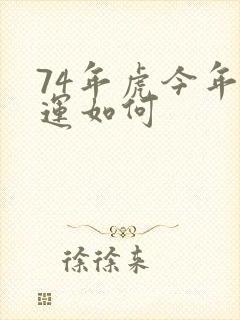 74年虎今年
運如何
徐徐来